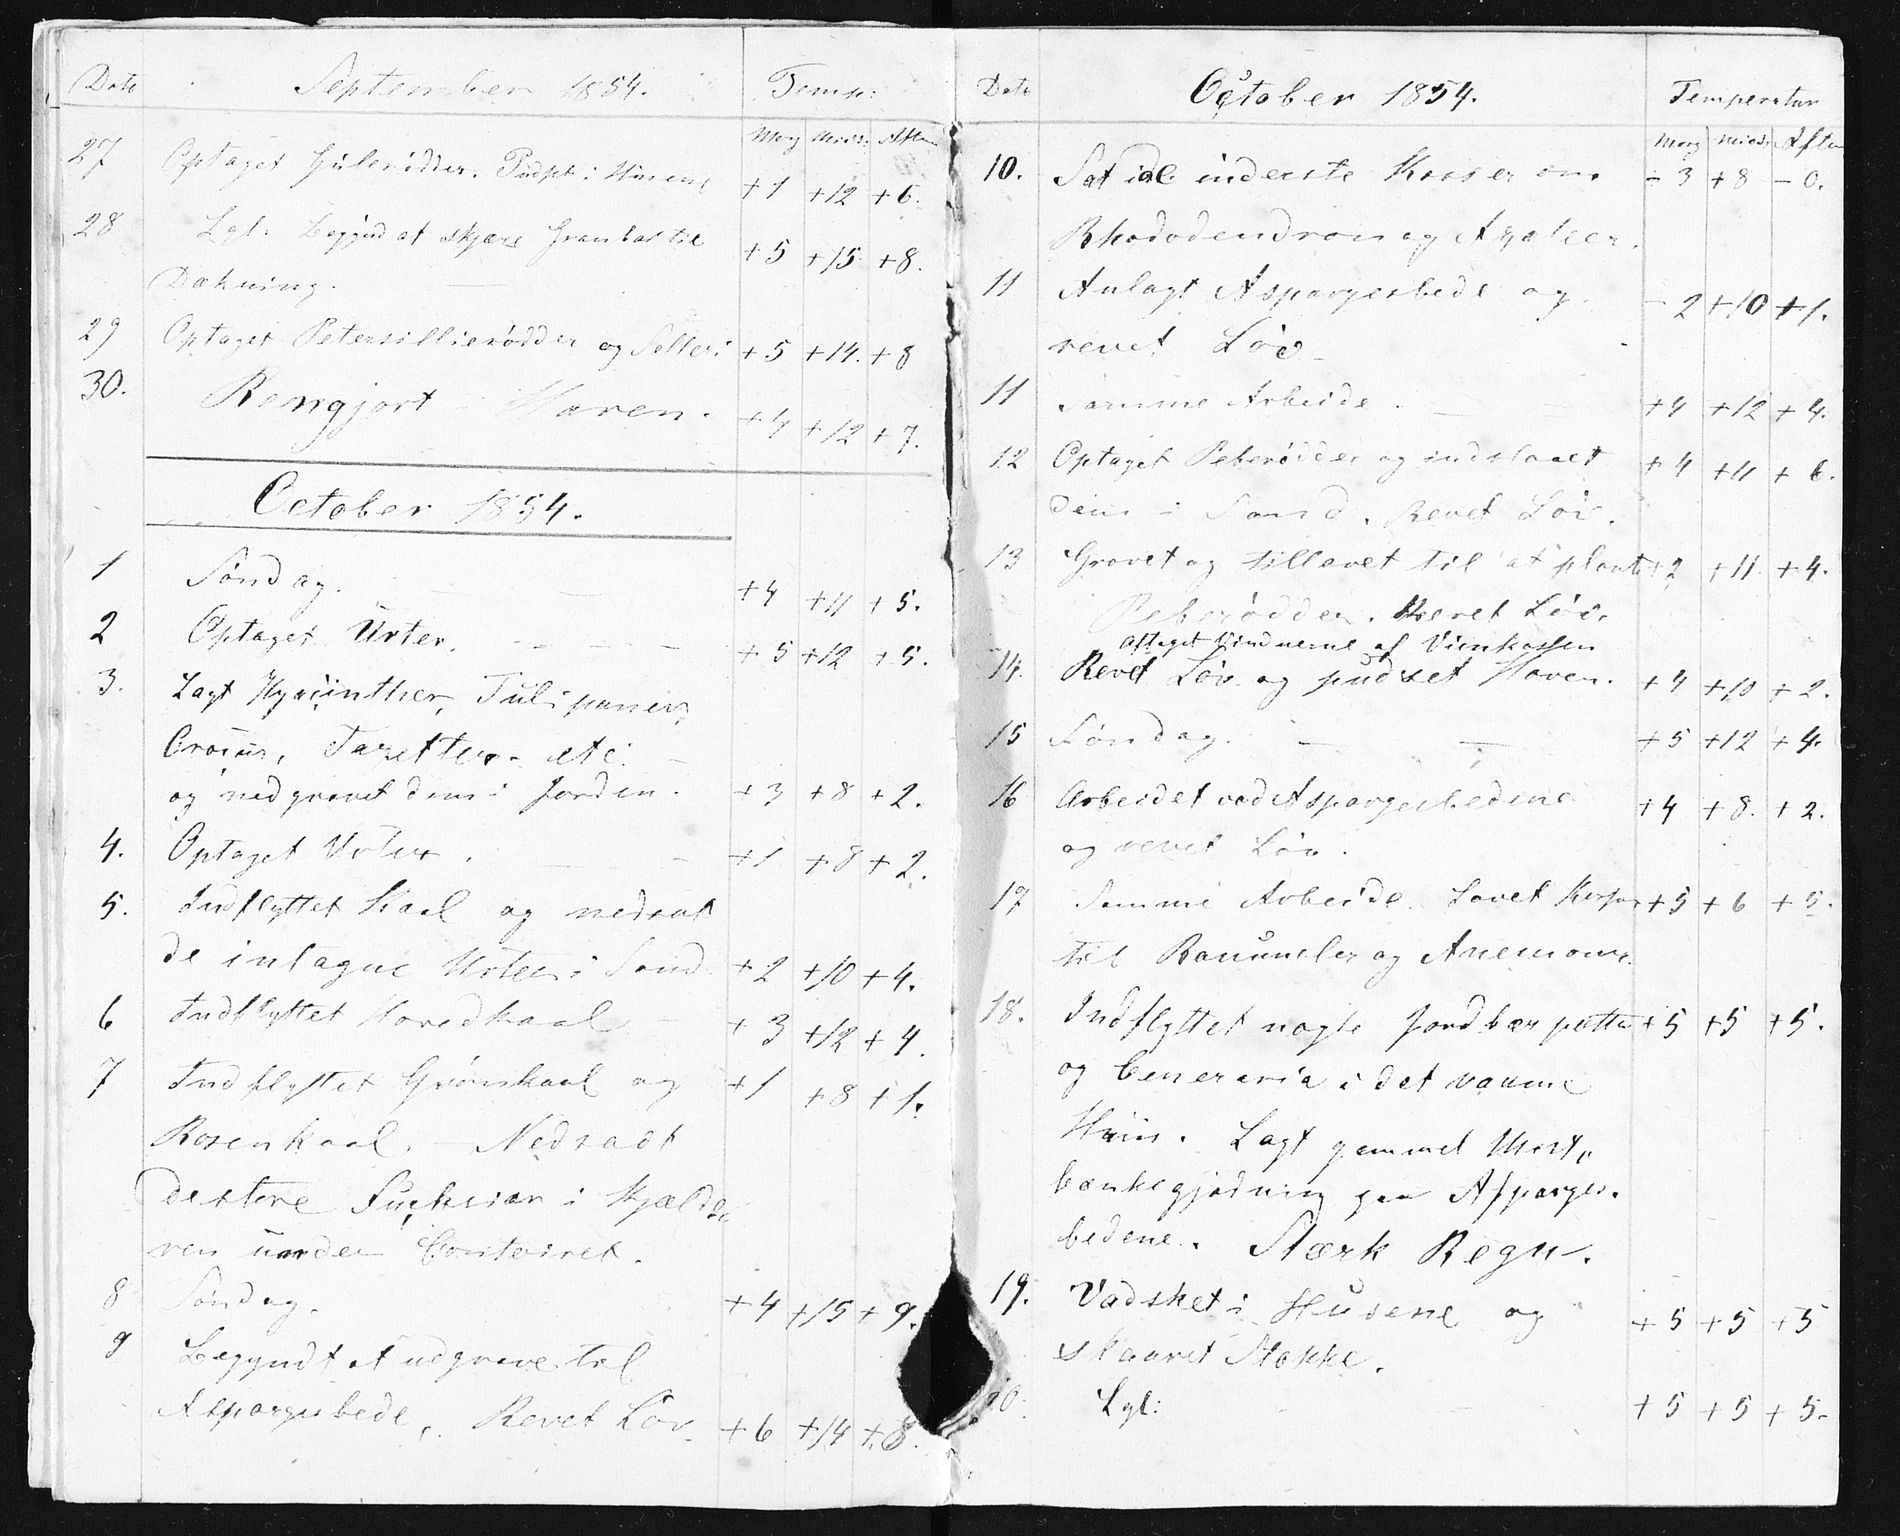 Date September 1854. Temp:
Morg Mid: Aften
27 Optaget Gulerødder. Pudset i Husene +1 +12 +6.
28 Lgl. Begynd at skjære Granbar til +5 +15 +8.
Dækning.
29 Optaget Petersillierødder og Selleri +5 +14. +8
30. Rengjort Haven. +4 +12 +7.
October 1854.
1 Søndag. +4 +11 +5.
2 Optaget Urter. +5 +12 +5.
3. Lagt Hyacinther, Tulipaner,
Crocus, Tazetter etc.
og nedgravet dem i Jorden. +3 +8 +2.
4. Optaget Urter. +1 +8 +2.
5. Indflyttet Kaal og nedsat
de intagne Urter i Sand +2 +10 +4.
6 Indflyttet Hovedkaal +3 +12 +4.
7 Indflyttet Grønkaal og +1 +8 +1.
Rosenkaal. Nedsadt
destore Fuchsier i Kjælde
ren under Contoiret.
8 Søndag. +4 +15 +9.
9 Begyndt at udgrave til
Aspargesbede, Revet Løv. +6 +14 +8.
Date October 1854. Temperatur
Morg Mid: Aften
10. Sat de inderste Kasser om -3 +8 -0.
Rhododendron og Azaleer.
11 Anlagt Aspargesbede og -2 +10 +1.
revet Løv
11 Samme Arbeide. +4 +12 +4.
12 Optaget Peberødder og indslaaet +4 +11 +6.
dem i Sand. Revet Løv.
13 Gravet og tillavet til at plante +2 +11 +4.
Peberødder. Revet Løv.
Aftaget Vinduerne af Viinkassen
14. Revet Løv og pudset Haven. +4 +10 +2.
15 Søndag. +5 +12 +4.
16 Arbeidet ved Aspargesbedene +4 +8. +2.
og revet Løv.
17 Samme Arbeide. Lavet +5 +6 +5.
til Ranunkler og Anemone.
18. Indflyttet nogle Jordbær potter +5 +5 +5.
og Ceneraria i det varme
Huus. Lagt gammel Mist,
bænkegjødning paa Asparges.
bedene. Stærk Regn.
19. Vadsket i Husene og +5 +5 +5
skaaret Stokke.
20. Lgl: +5 +5 +5.